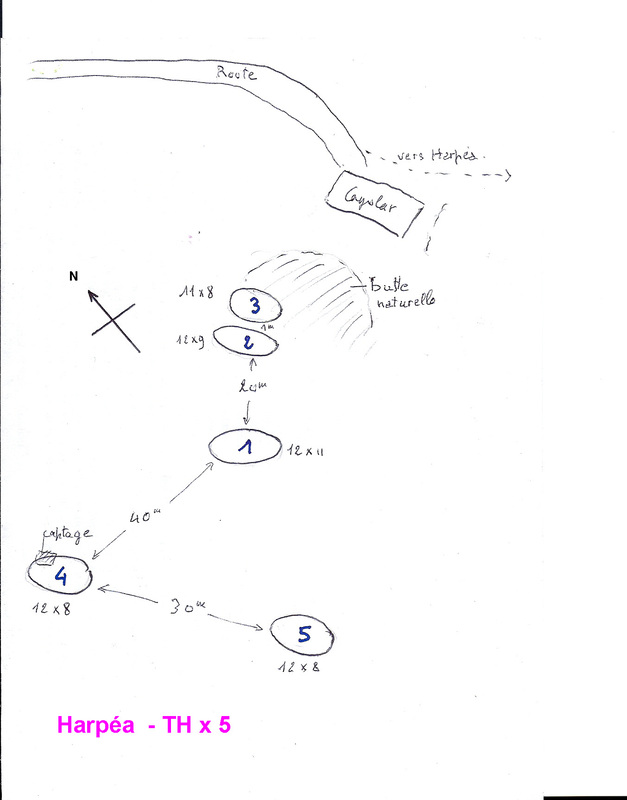 Route
vers Harpéa.
Cayolar
N
11 x 8
3
butte
naturelle
1m
12 x 9
2
20m
1
12 x 11
40m
captage
4
12 x 8
30m
5
12 x 8
Harpéa - TH x 5